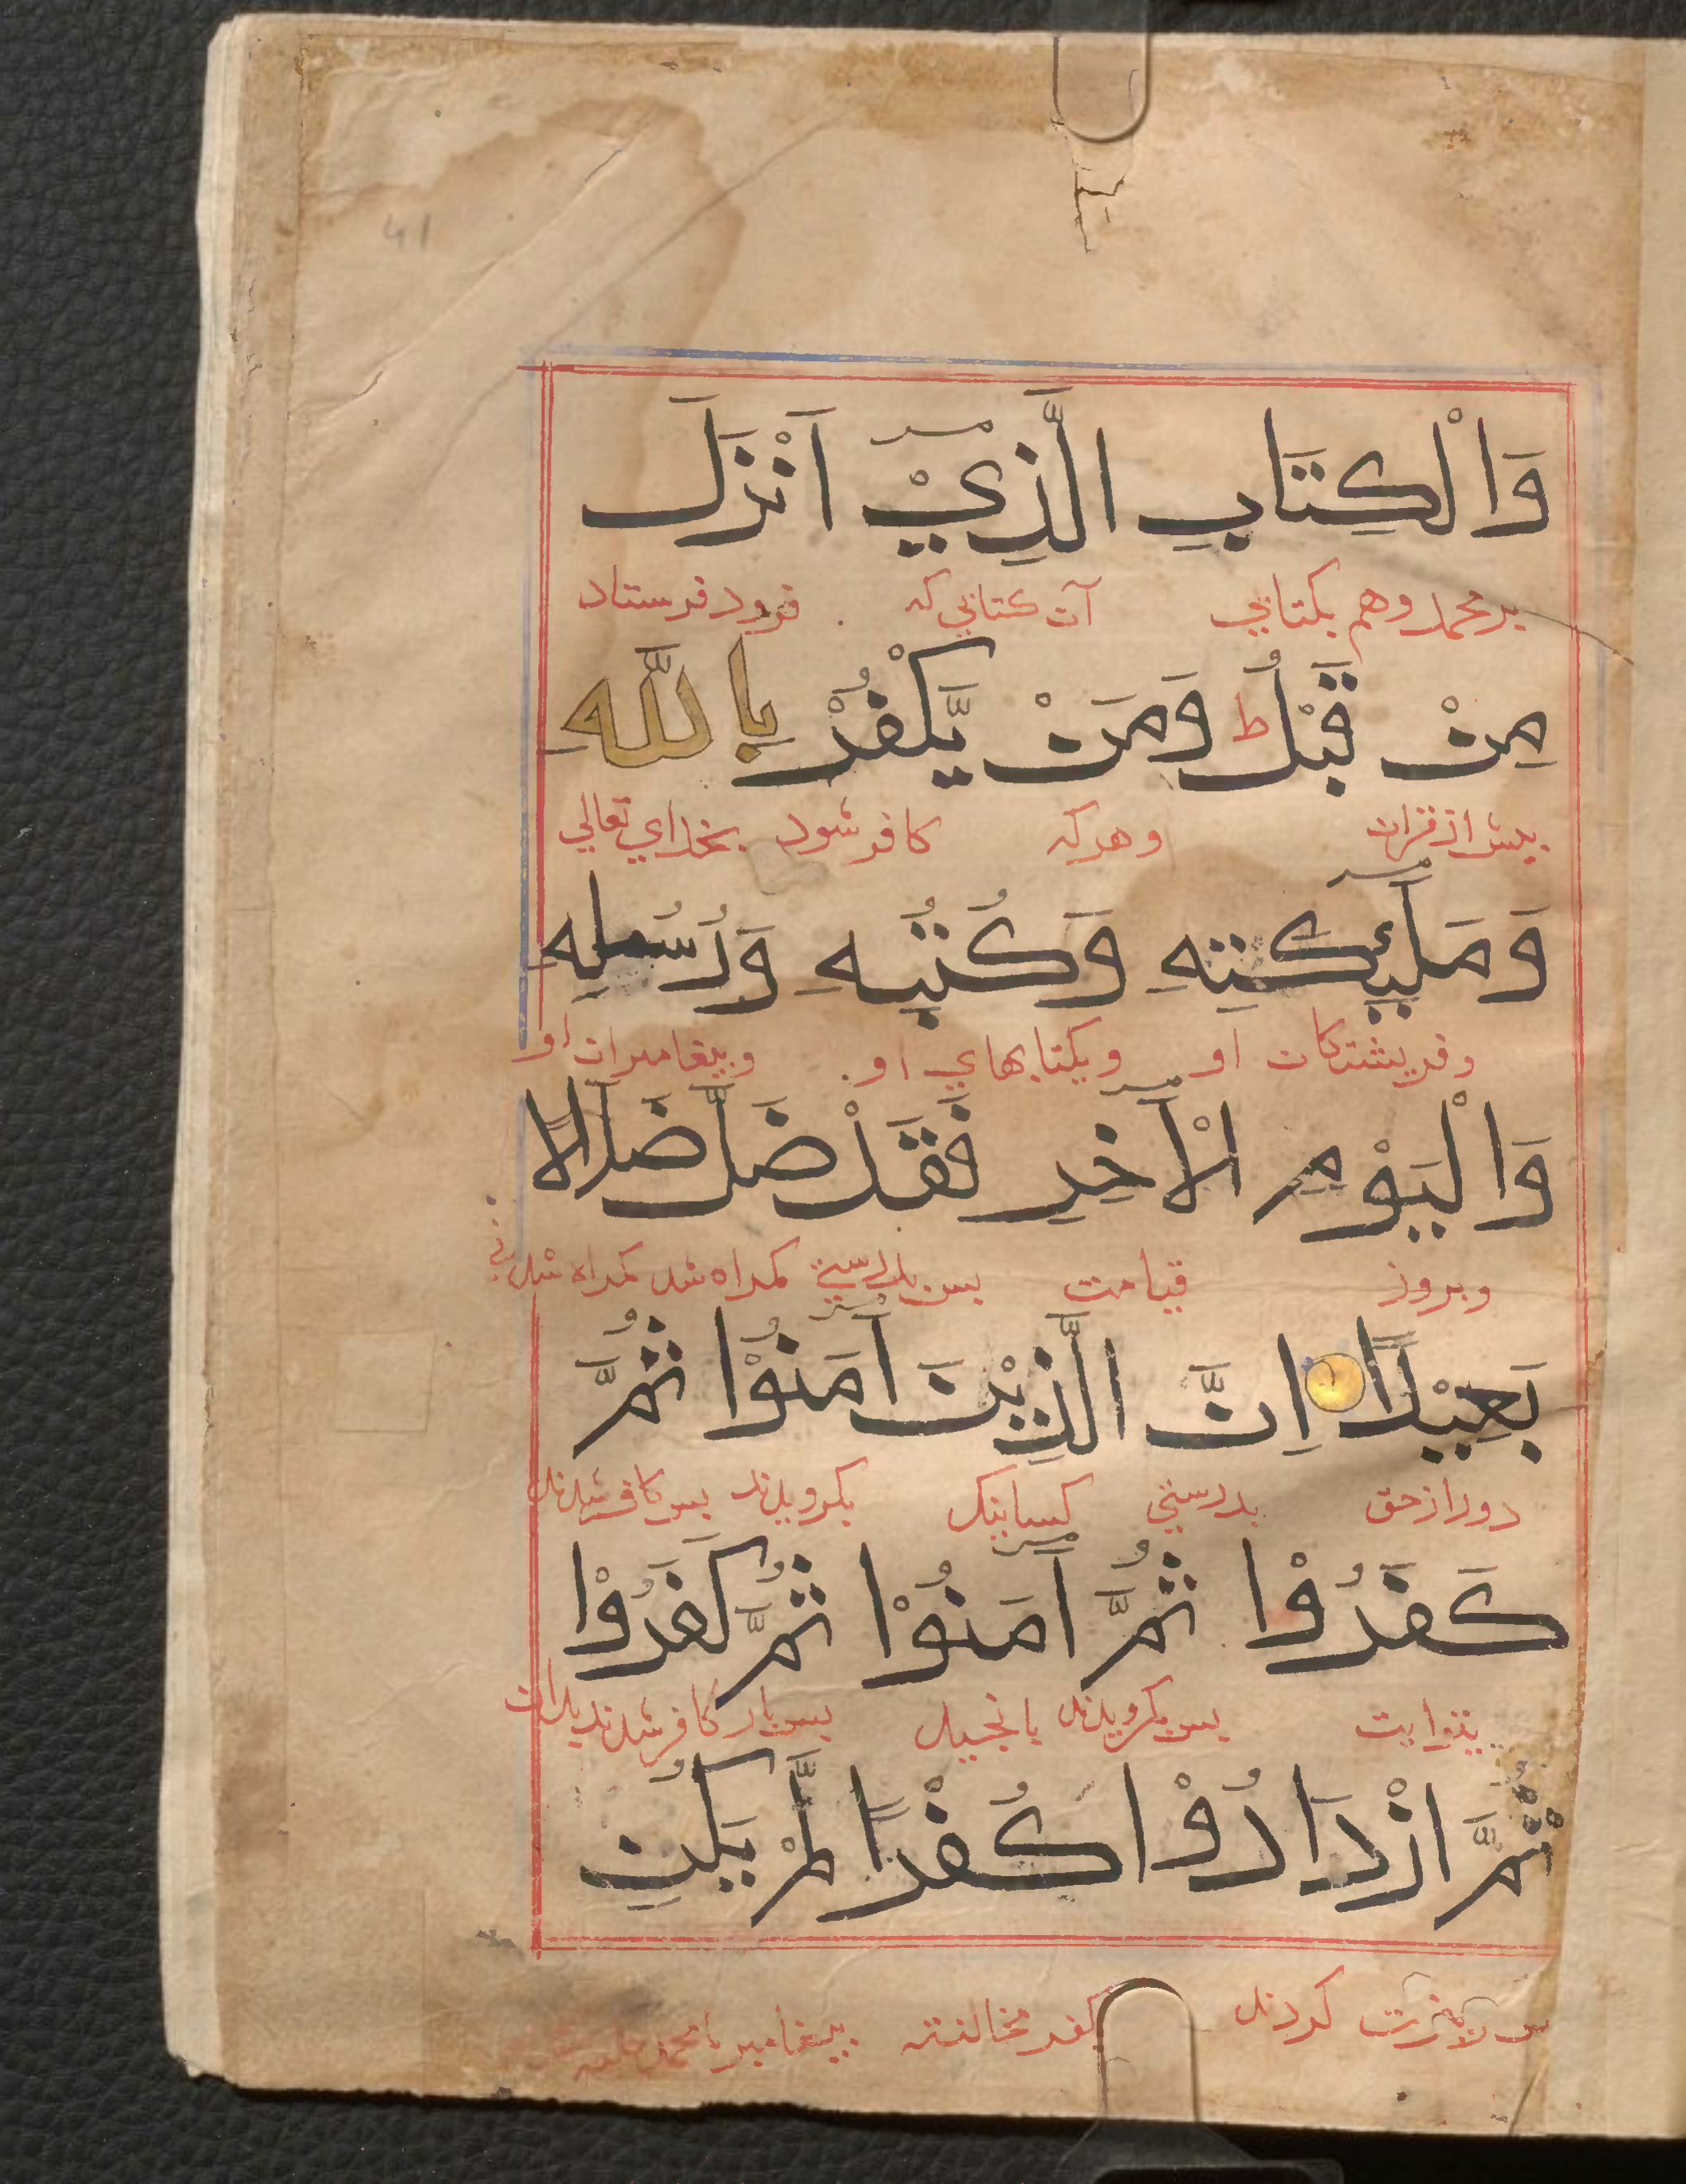 41
وَالْكِتَابِ الَّذِيْٓ اَنْزَلَ
بر محمد وهم بكتابي آن كتابي كه فرود فرستاد
مِنْ قَبْلُ ط وَمَنْ يَّكْفُرْ بِاللّٰهِ
پيش از قران وهر كه كافر شود بخداي تعالي
وَمَلٰٓئِكَتِهِ وَكُتُبِهِ وَرُسُلِهِ
وفريشتكان او وبكتابهاي او وپيغامبران او
وَالْيَوْمِ الْاٰخِرِ فَقَدْ ضَلَّ ضَلَالًا
وبروز قيامت پس بدرستي كمراه شد كمراه شدني
بَعِيْدًا اِنَّ الَّذِيْنَ اٰمَنُوْا ثُمَّ
دور از حق بدرستي كسانيك بكرويدند پس كافر شدند
كَفَرُوْا ثُمَّ اٰمَنُوْا ثُمَّ كَفَرُوْا
پس بكرويدند بانجيل پس بار كافر شدند بدان
ثُمَّ ازْدَادُوْا كُفْرًا لَّمْ يَكُنِ
كردند كفر مخالفت پيغامبر با محمد